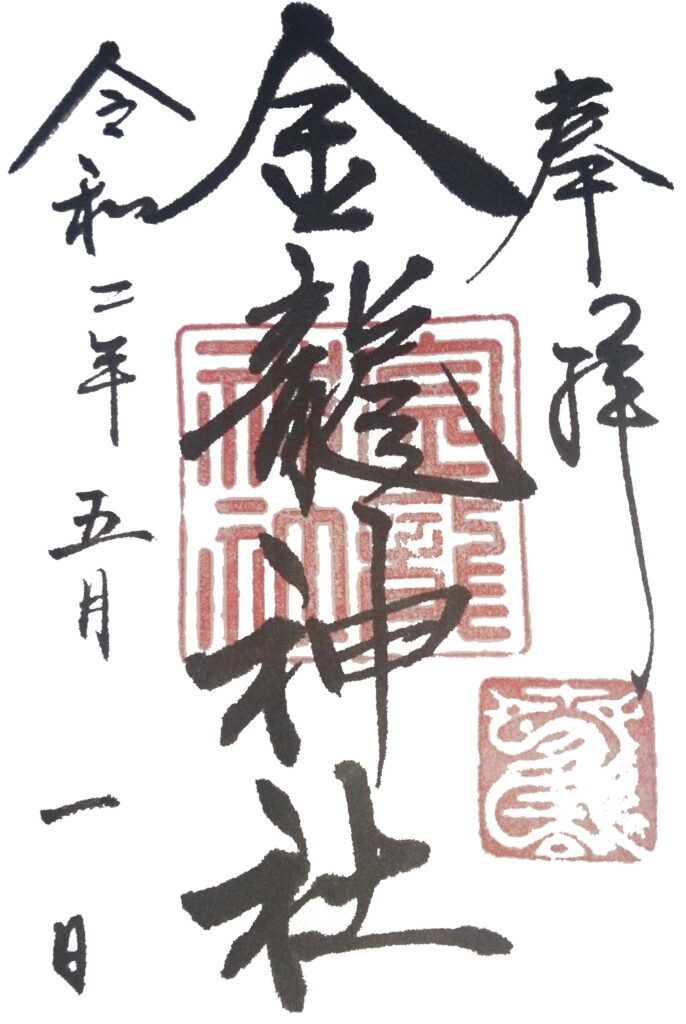 奉拝
金龍神社
令和二年五月一日